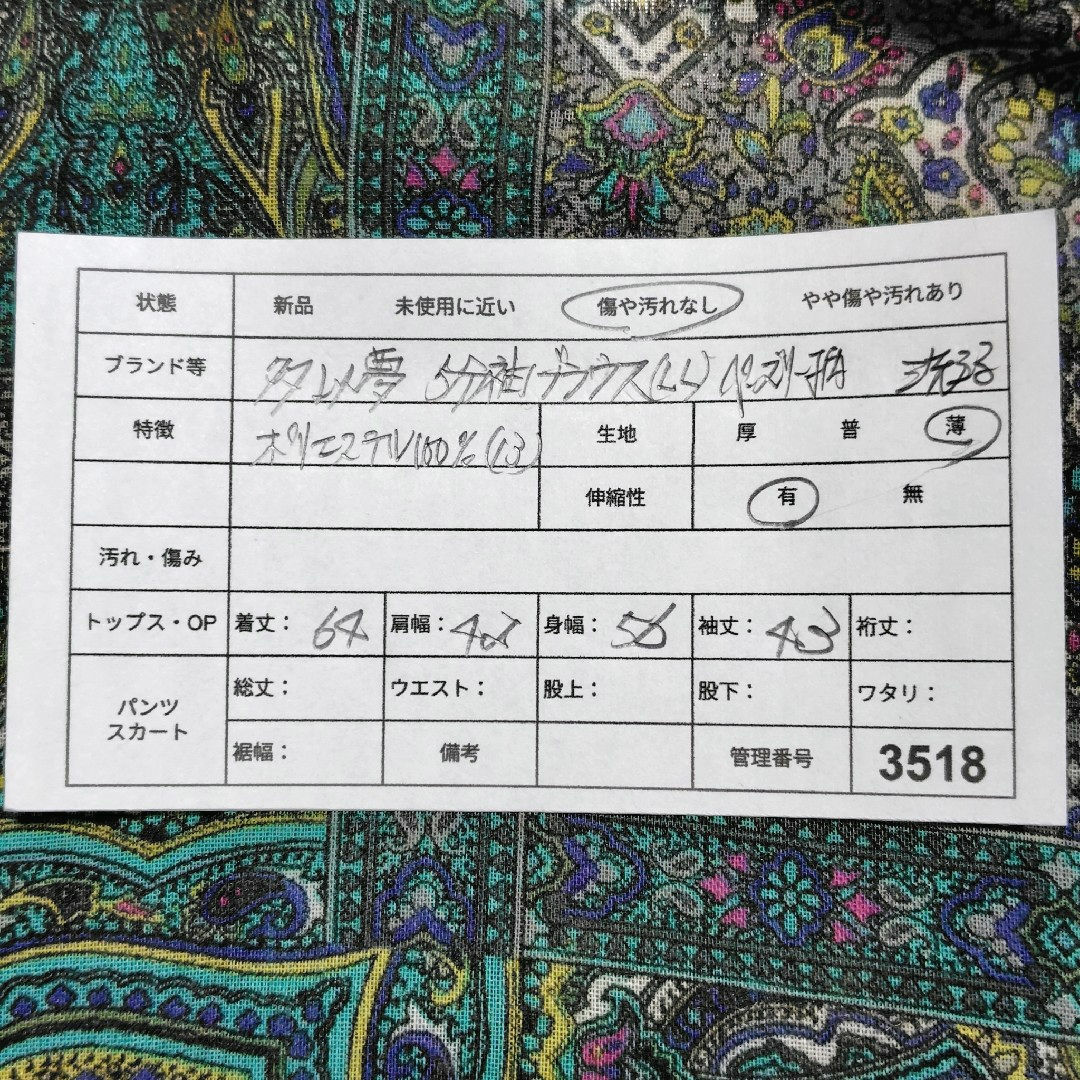 状態 新品 未使用に近い 傷や汚れなし やや傷や汚れあり
ブランド等 夢 5分袖ブラウス(LL) ペーズリー柄
特徴 ポリエステル100%(13) 生地 厚 普 薄
伸縮性 有 無
汚れ・傷み
トップス・OP 着丈: 64 肩幅: 身幅: 56 袖丈: 43 裄丈:
パンツ スカート 総丈: ウエスト: 股上: 股下: ワタリ:
裾幅: 備考 管理番号 3518